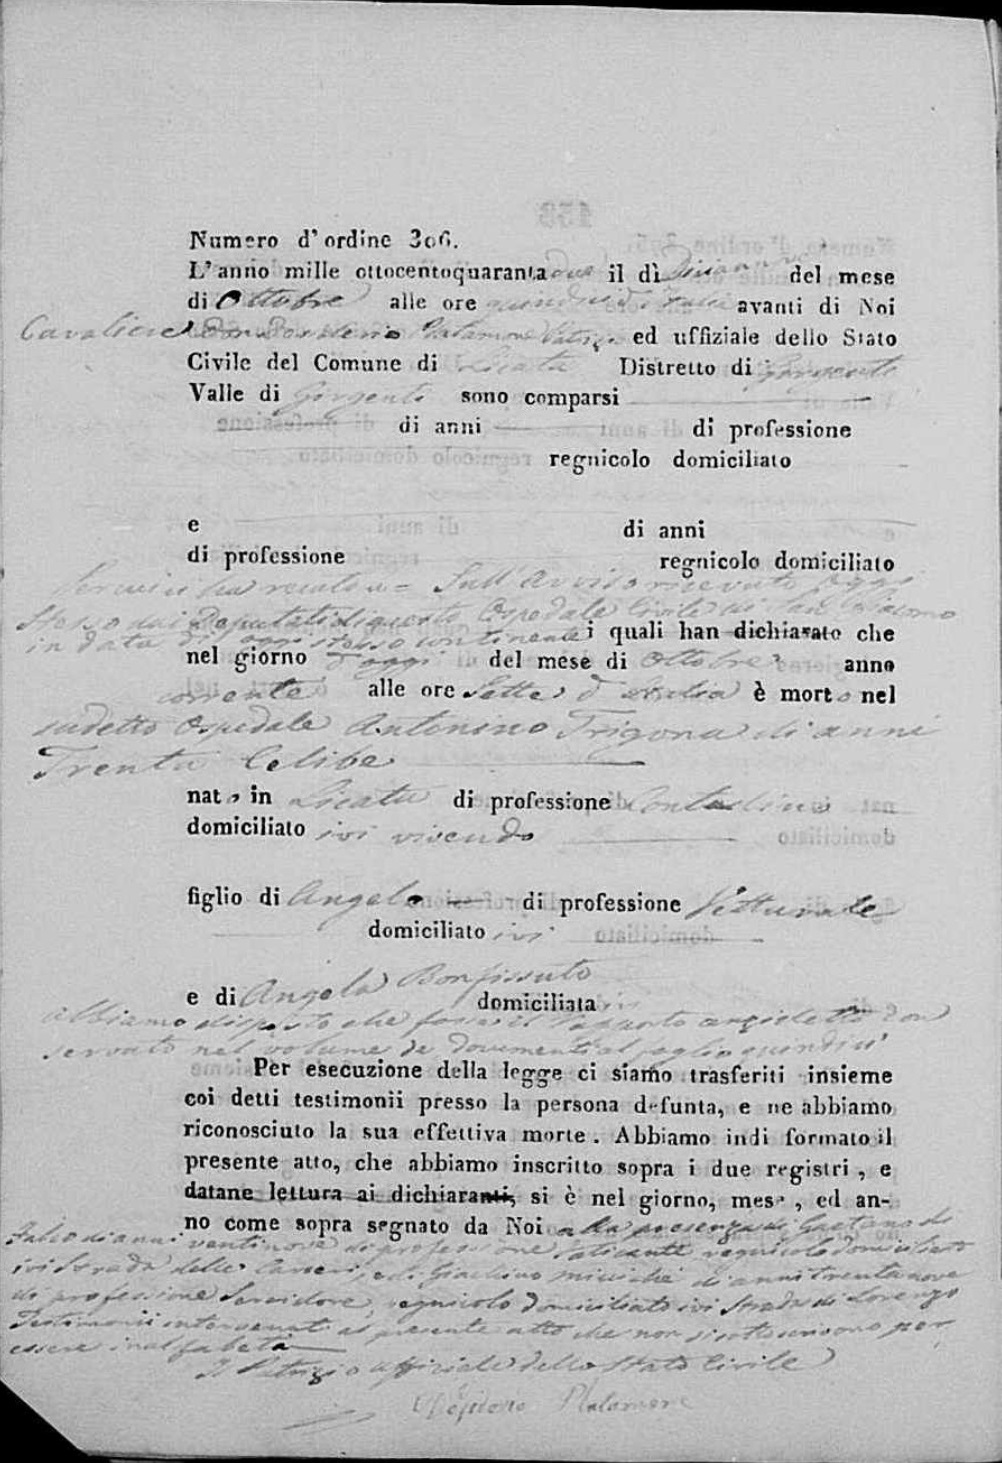 Numero d'ordine 306.
L'anno mille ottocentoquaranta due il dì del mese
di Ottobre alle ore quindici d'Italia avanti di Noi
Cavaliere Don Desiderio Platamone Patrizio ed uffiziale dello Stato
Civile del Comune di Licata Distretto di Girgenti
Valle di Girgenti sono comparsi
di anni di professione
regnicolo domiciliato
e di anni
di professione regnicolo domiciliato
Sull'avviso ricevuto oggi
stesso dai Deputati di questo Ospedale Civile di San Giacomo
in data di oggi stesso continente i quali han dichiarato che
nel giorno d'oggi del mese di Ottobre anno
corrente alle ore Sette d'Italia è morto nel
sudetto Ospedale Antonino Trigona di anni
Trenta Celibe
nato in Licata di professione Contadino
domiciliato ivi vivendo
figlio di Angelo di professione Vitturale
domiciliato ivi
e di Angela Bonfissuto domiciliata ivi
Abbiamo disposto che fosse il rapporto anzidetto con
servato nel volume de documenti al foglio quindici
Per esecuzione della legge ci siamo trasferiti insieme
coi detti testimonii presso la persona defunta, e ne abbiamo
riconosciuto la sua effettiva morte. Abbiamo indi formato il
presente atto, che abbiamo inscritto sopra i due registri, e
datane lettura ai dichiaranti, si è nel giorno, mese, ed an-
no come sopra segnato da Noi a la presenza di Gaetano di
Falco di anni ventinove di professione faticante regnicolo domiciliato
ivi Strada delle Carceri, e di Giachino Miciché di anni trentanove
di professione Servidore, regnicolo domiciliato ivi Strada di Lorenzo
Testimonii intervenuti al presente atto che non si sottoscrivono per
essere inalfabeta
Il Patrizio ufficiale dello Stato Civile
Desiderio Platamone